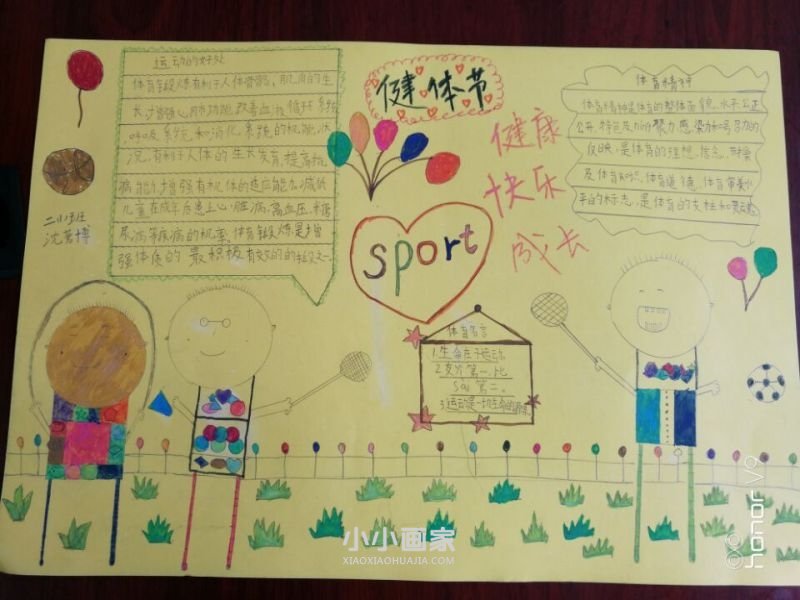 运动的好处
体育锻炼有利于人体骨骼、肌肉的生
长,增强心肺功能,改善血液循环系统
、呼吸系统和消化系统的机能状
况,有利于人体的生长发育,提高抗
病能力,增强有机体的适应能力,减低
儿童在成年后患上心脏病,高血压,糖
尿病等疾病的机率。体育锻炼是增
强体质的最积极有效的
二(1)班
健体节
健康
快乐
成长
sport
体育名言
1.生命在于运动
2.友谊第一,比
赛第二。
3.运动是一切生命的源泉
体育精神
体育精神是体育的整体面貌、水平、公正
公开、特色及
反映,是体育的理想、信念、
及体育知识、体育道德、体育审美水
平的标志,是体育的支柱和灵魂。
小小画家
XIAOXIAOHUAJIA.COM
honor V9